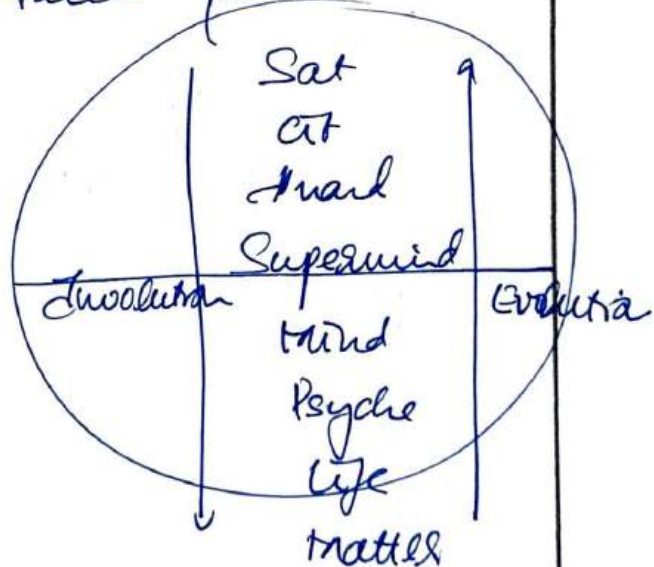 Sat
Cit
Anand
Supermind
Involution
Evolution
Mind
Psyche
Life
Matter